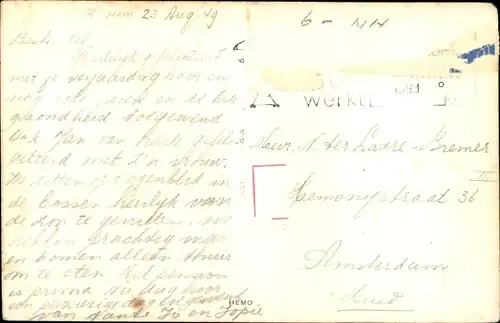 23 Aug '49
6 - NH
Beste
Hartelijk gefeliciteerd
met je verjaardag hoor en
nog vele jaren en in de beste
gezondheid toegewend
Ook Jan van harte gefeli-
citeerd met z'n vrouw.
We zitten op 't ogenblik in
de bossen heerlijk van
de zon te genieten, we
hebben prachtig weer
en komen alleen thuis
om te eten het pension
is prima
een plezierige dag toegewenst
van tante Jo en Jopie
werkt
Mevr. N. ter Laare-Bremer
Hemonystraat 36
III
Amsterdam
Zuid
HEMO